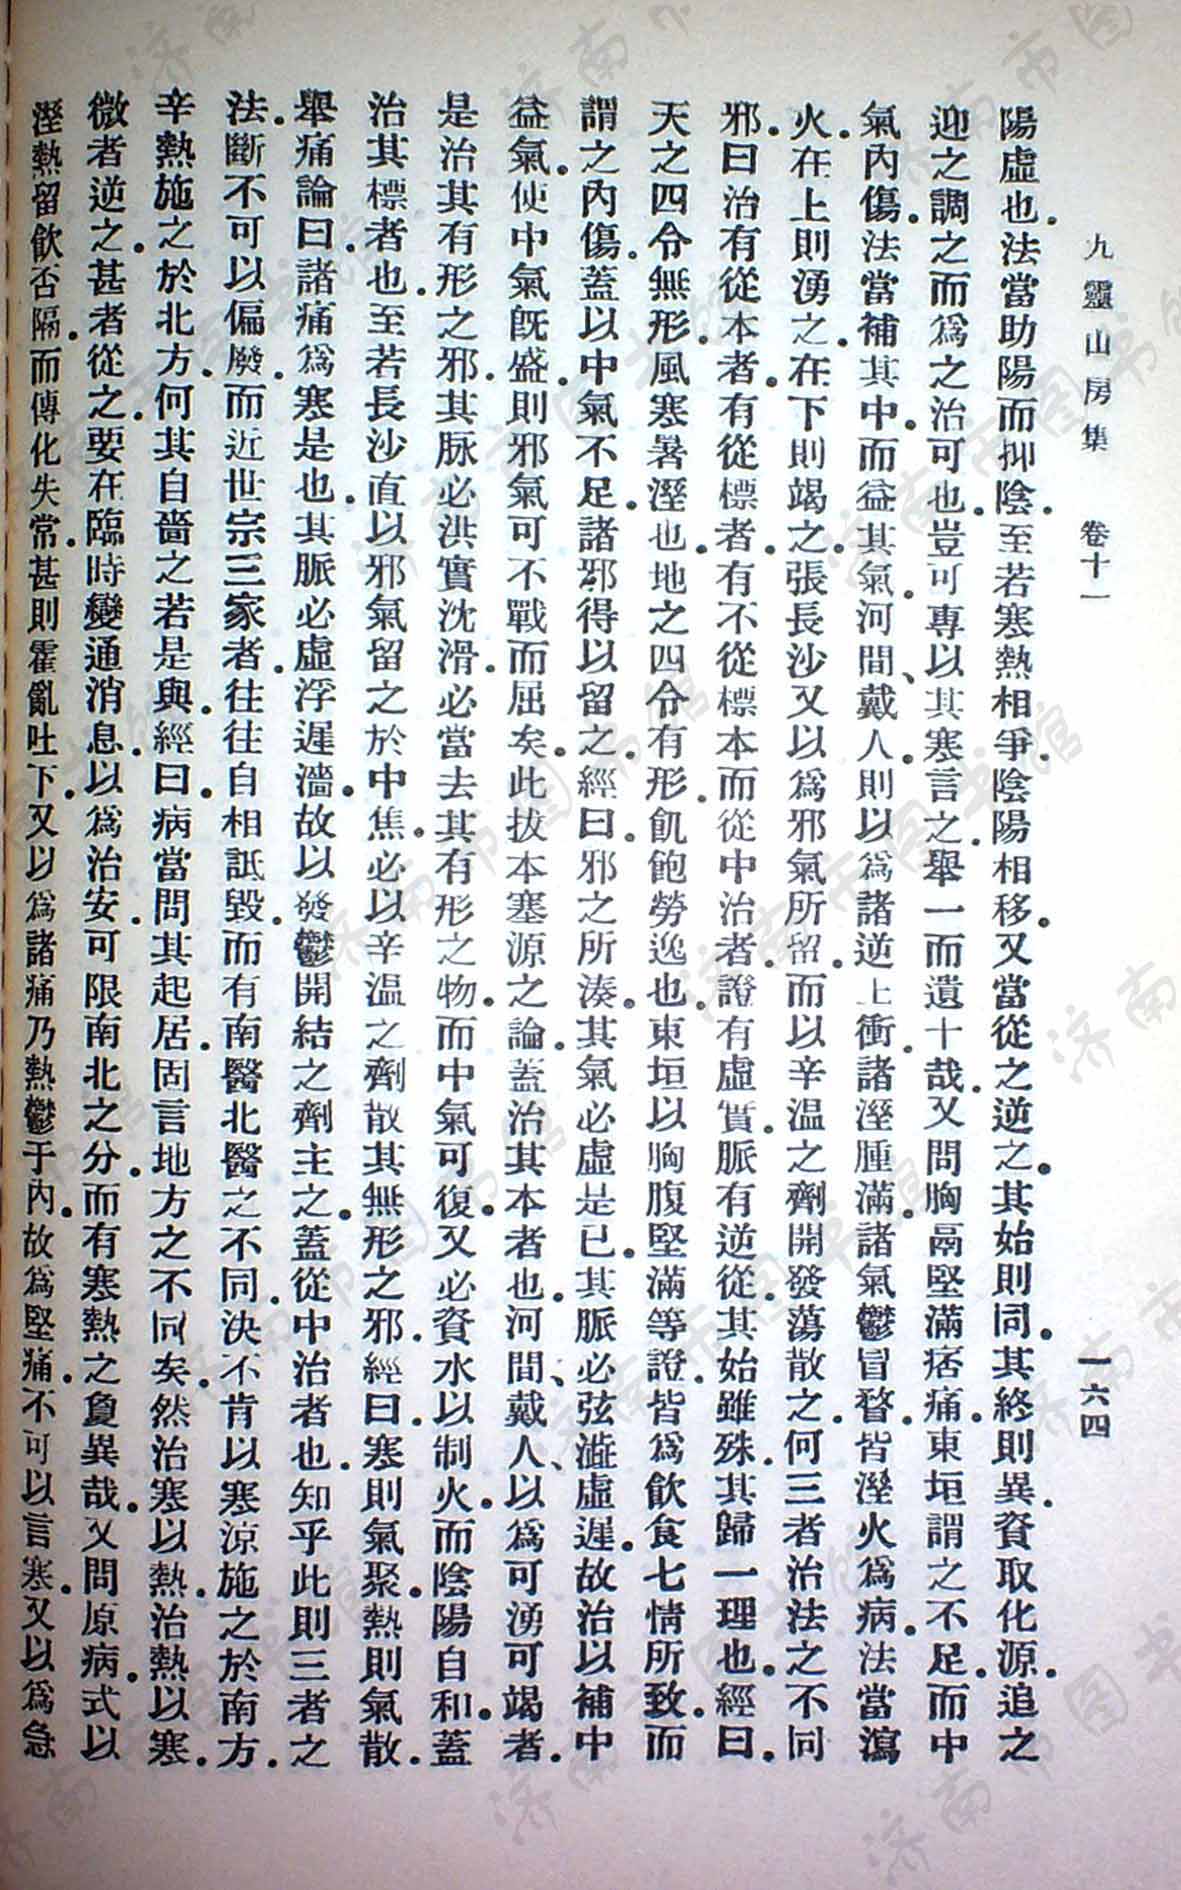 九靈山房集　卷十一　一六四
陽虛也。法當助陽而抑陰。至若寒熱相爭。陰陽相移。又當從之逆之。其始則同。其終則異。資取化源。追之
迎之調之而爲之治可也。豈可專以其寒言之。舉一而遺十哉。又問胸鬲堅滿痞痛。東垣謂之不足。而中
氣內傷。法當補其中而益其氣。河間、戴人。則以爲諸逆上衝。諸溼腫滿。諸氣鬱冒瞀。皆溼火爲病。法當瀉
火。在上則湧之。在下則竭之。張長沙又以爲邪氣所留。而以辛温之劑開發蕩散之。何三者治法之不同
邪。曰治有從本者。有從標者。有不從標本而從中治者。證有虛實。脈有逆從。其始雖殊。其歸一理也。經曰。
天之四令無形。風寒暑溼也。地之四令有形。飢飽勞逸也。東垣以胸腹堅滿等證。皆爲飲食七情所致。而
謂之內傷。蓋以中氣不足。諸邪得以留之。經曰。邪之所湊。其氣必虛是已。其脈必弦濇虛遲。故治以補中
益氣。使中氣旣盛。則邪氣可不戰而屈矣。此拔本塞源之論。蓋治其本者也。河間、戴人、以爲可湧可竭者。
是治其有形之邪。其脉必洪實沈滑。必當去其有形之物。而中氣可復。又必資水以制火。而陰陽自和。蓋
治其標者也。至若長沙直以邪氣留之於中焦。必以辛温之劑散其無形之邪。經曰。寒則氣聚。熱則氣散。
舉痛論曰。諸痛爲寒是也。其脈必虛浮遲濇。故以發鬱開結之劑主之。蓋從中治者也。知乎此則三者之
法。斷不可以偏廢。而近世宗三家者。往往自相詆毀。而有南醫北醫之不同。決不肯以寒涼施之於南方。
辛熱施之於北方。何其自嗇之若是與。經曰。病當問其起居。固言地方之不同矣。然治寒以熱。治熱以寒。
微者逆之。甚者從之。要在臨時變通消息。以爲治安。可限南北之分。而有寒熱之夐異哉。又問原病式以
溼熱留飲否隔。而傳化失常。甚則霍亂吐下。又以爲諸痛乃熱鬱于內。故爲堅痛。不可以言寒。又以爲急